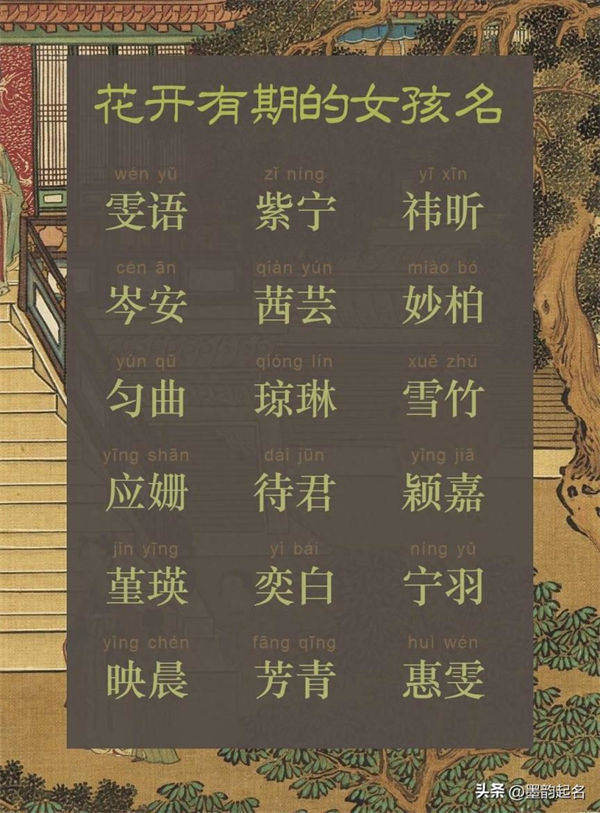 花开有期的女孩名
wén yǔ zǐ níng yī xīn
雯语 紫宁 祎昕
cén ān qiàn yún miào bó
岑安 茜芸 妙柏
yún qǔ qióng lín xuě zhú
匀曲 琼琳 雪竹
yīng shān dài jūn yǐng jiā
应姗 待君 颖嘉
jǐn yīng yì bái níng yǔ
堇瑛 奕白 宁羽
yìng chén fāng qīng huì wén
映晨 芳青 惠雯
头条 @墨韵起名